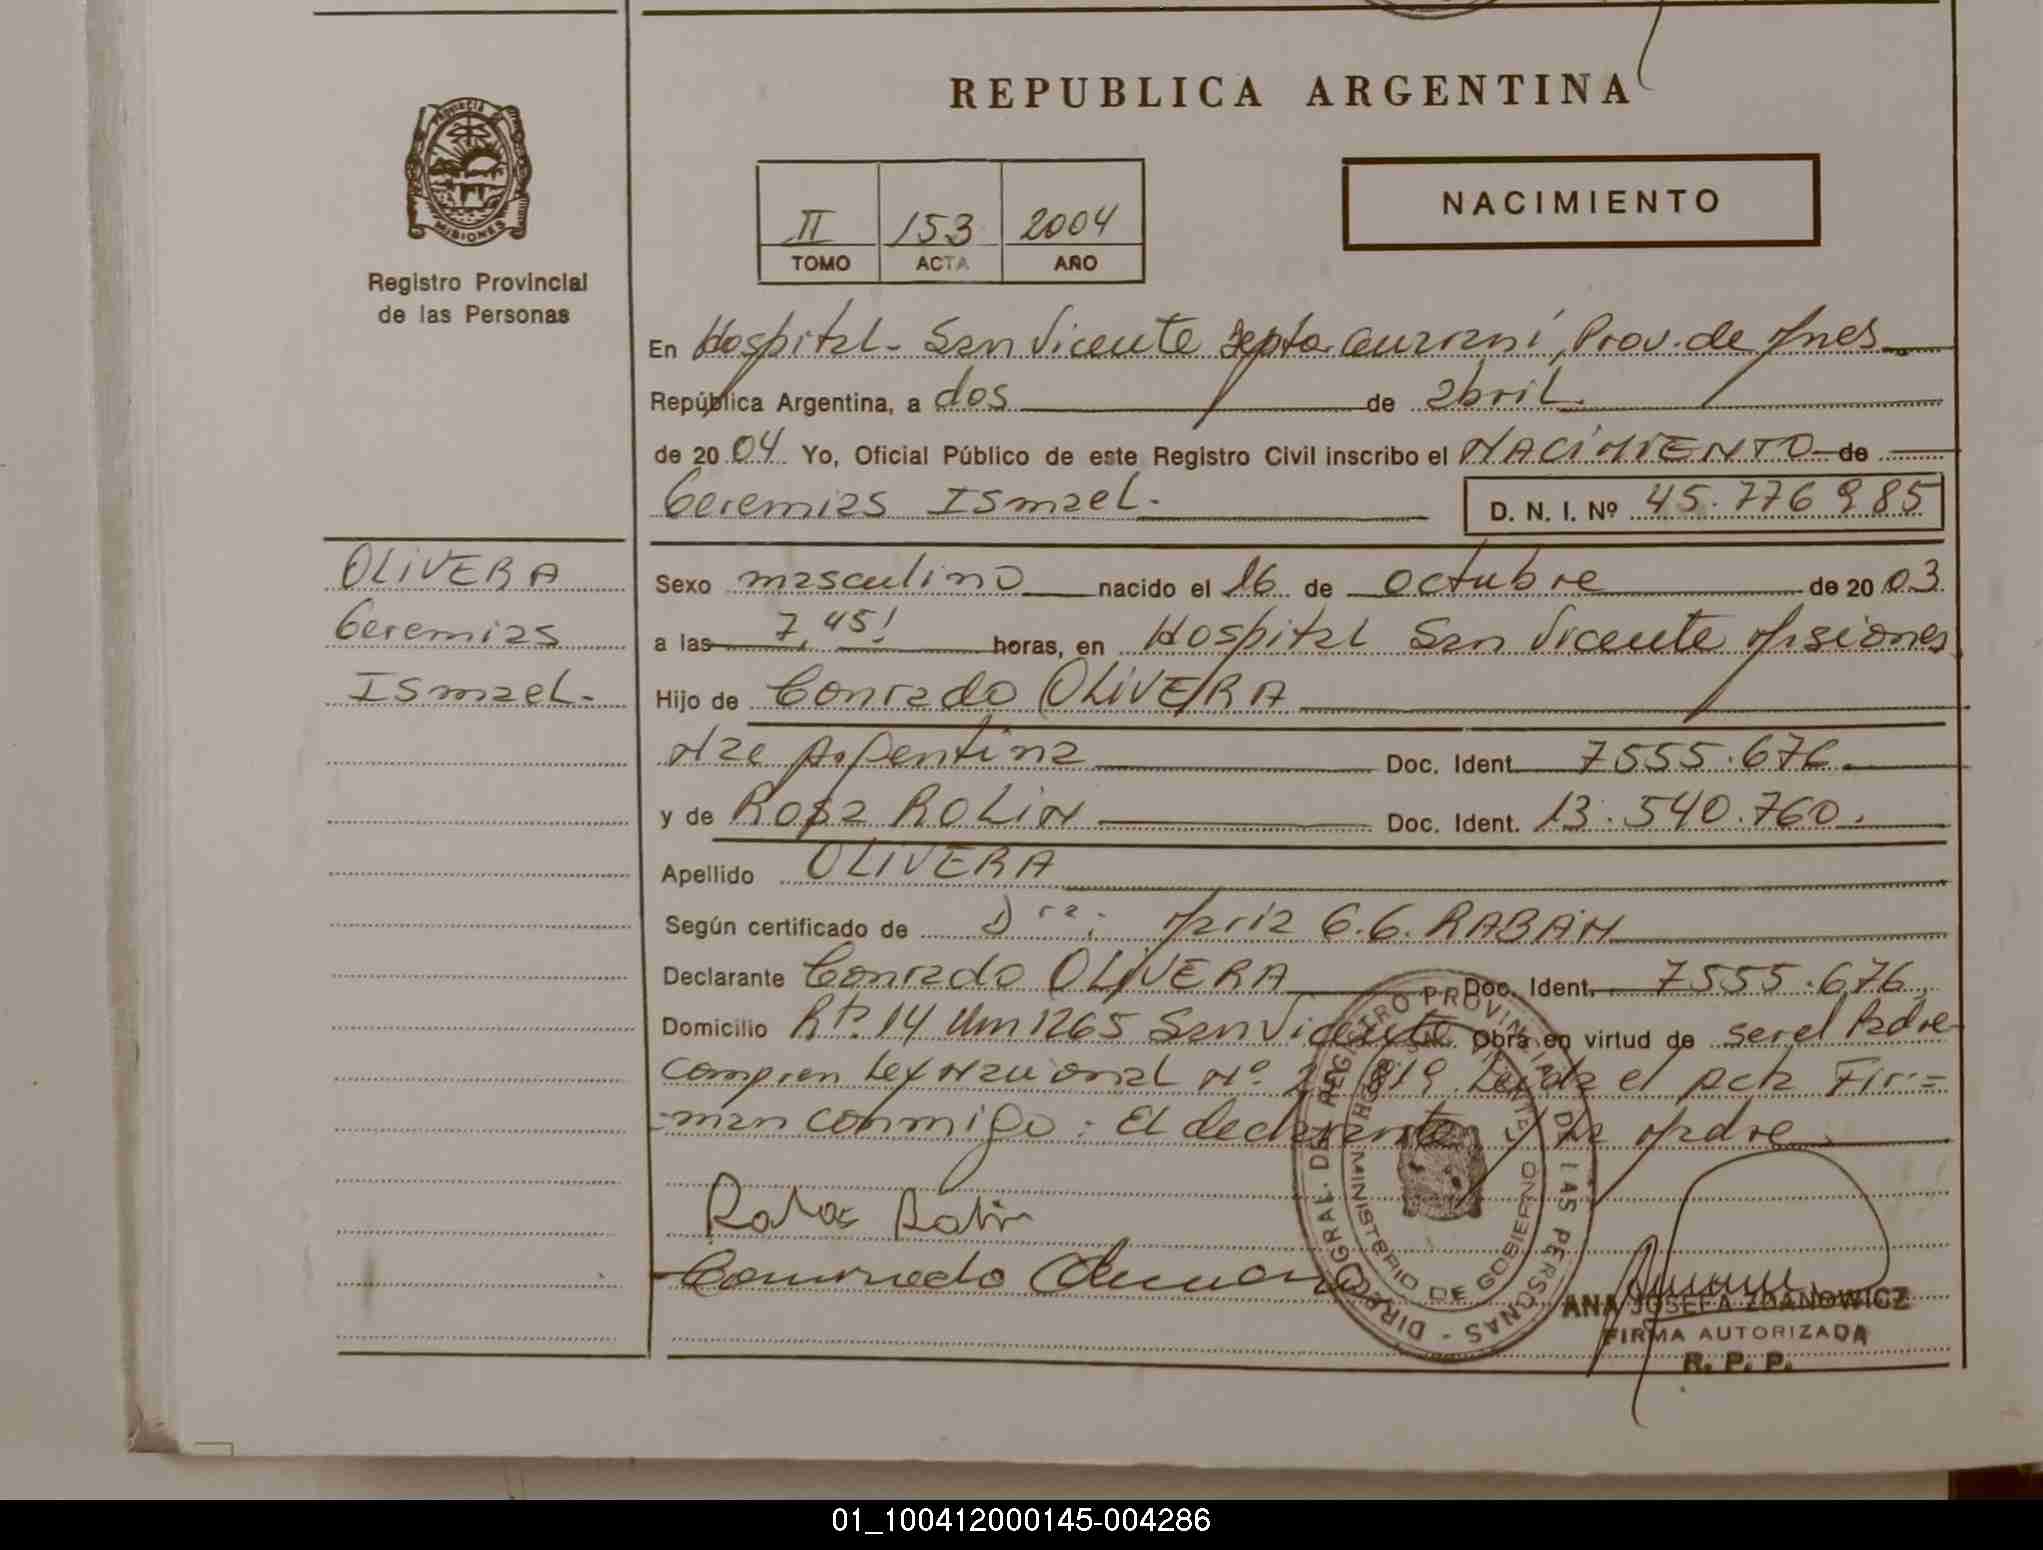 REPUBLICA ARGENTINA
PROVINCIA DE
MISIONES
Registro Provincial
de las Personas
II 153 2004
TOMO ACTA AÑO
NACIMIENTO
En Hospital - San Vicente Depto. Guaraní, Prov. de Mnes.
República Argentina, a dos de abril.
de 2004 Yo, Oficial Público de este Registro Civil inscribo el NACIMIENTO de
Geremias Ismael.
D. N. I. Nº 45.776985
OLIVERA
Geremias
Ismael.
Sexo masculino nacido el 16 de octubre de 2003.
a las 7,45! horas, en Hospital San Vicente Misiones
Hijo de Conrado OLIVERA
Nac Argentina Doc. Ident. 7555.676.
y de Rosa ROLIN Doc. Ident. 13.540.760.
Apellido OLIVERA
Según certificado de Dra. Maria G.G. RABAN
Declarante Conrado OLIVERA Doc. Ident. 7555.676,
Domicilio Rta. 14 Km 1265 San Vicente Obra en virtud de ser el Padre
Compren Ley Nacional Nº 25.819 Leída el Acta Fir=
-man conmigo: El declarante y la Madre.
Rosa Rolin
DIREC. GRAL. DE REGISTRO PROVINCIAL DE LAS PERSONAS -
MINISTERIO DE GOBIERNO
ANA JOSEFA ZDANOWICZ
FIRMA AUTORIZADA
R. P. P.
01_100412000145-004286